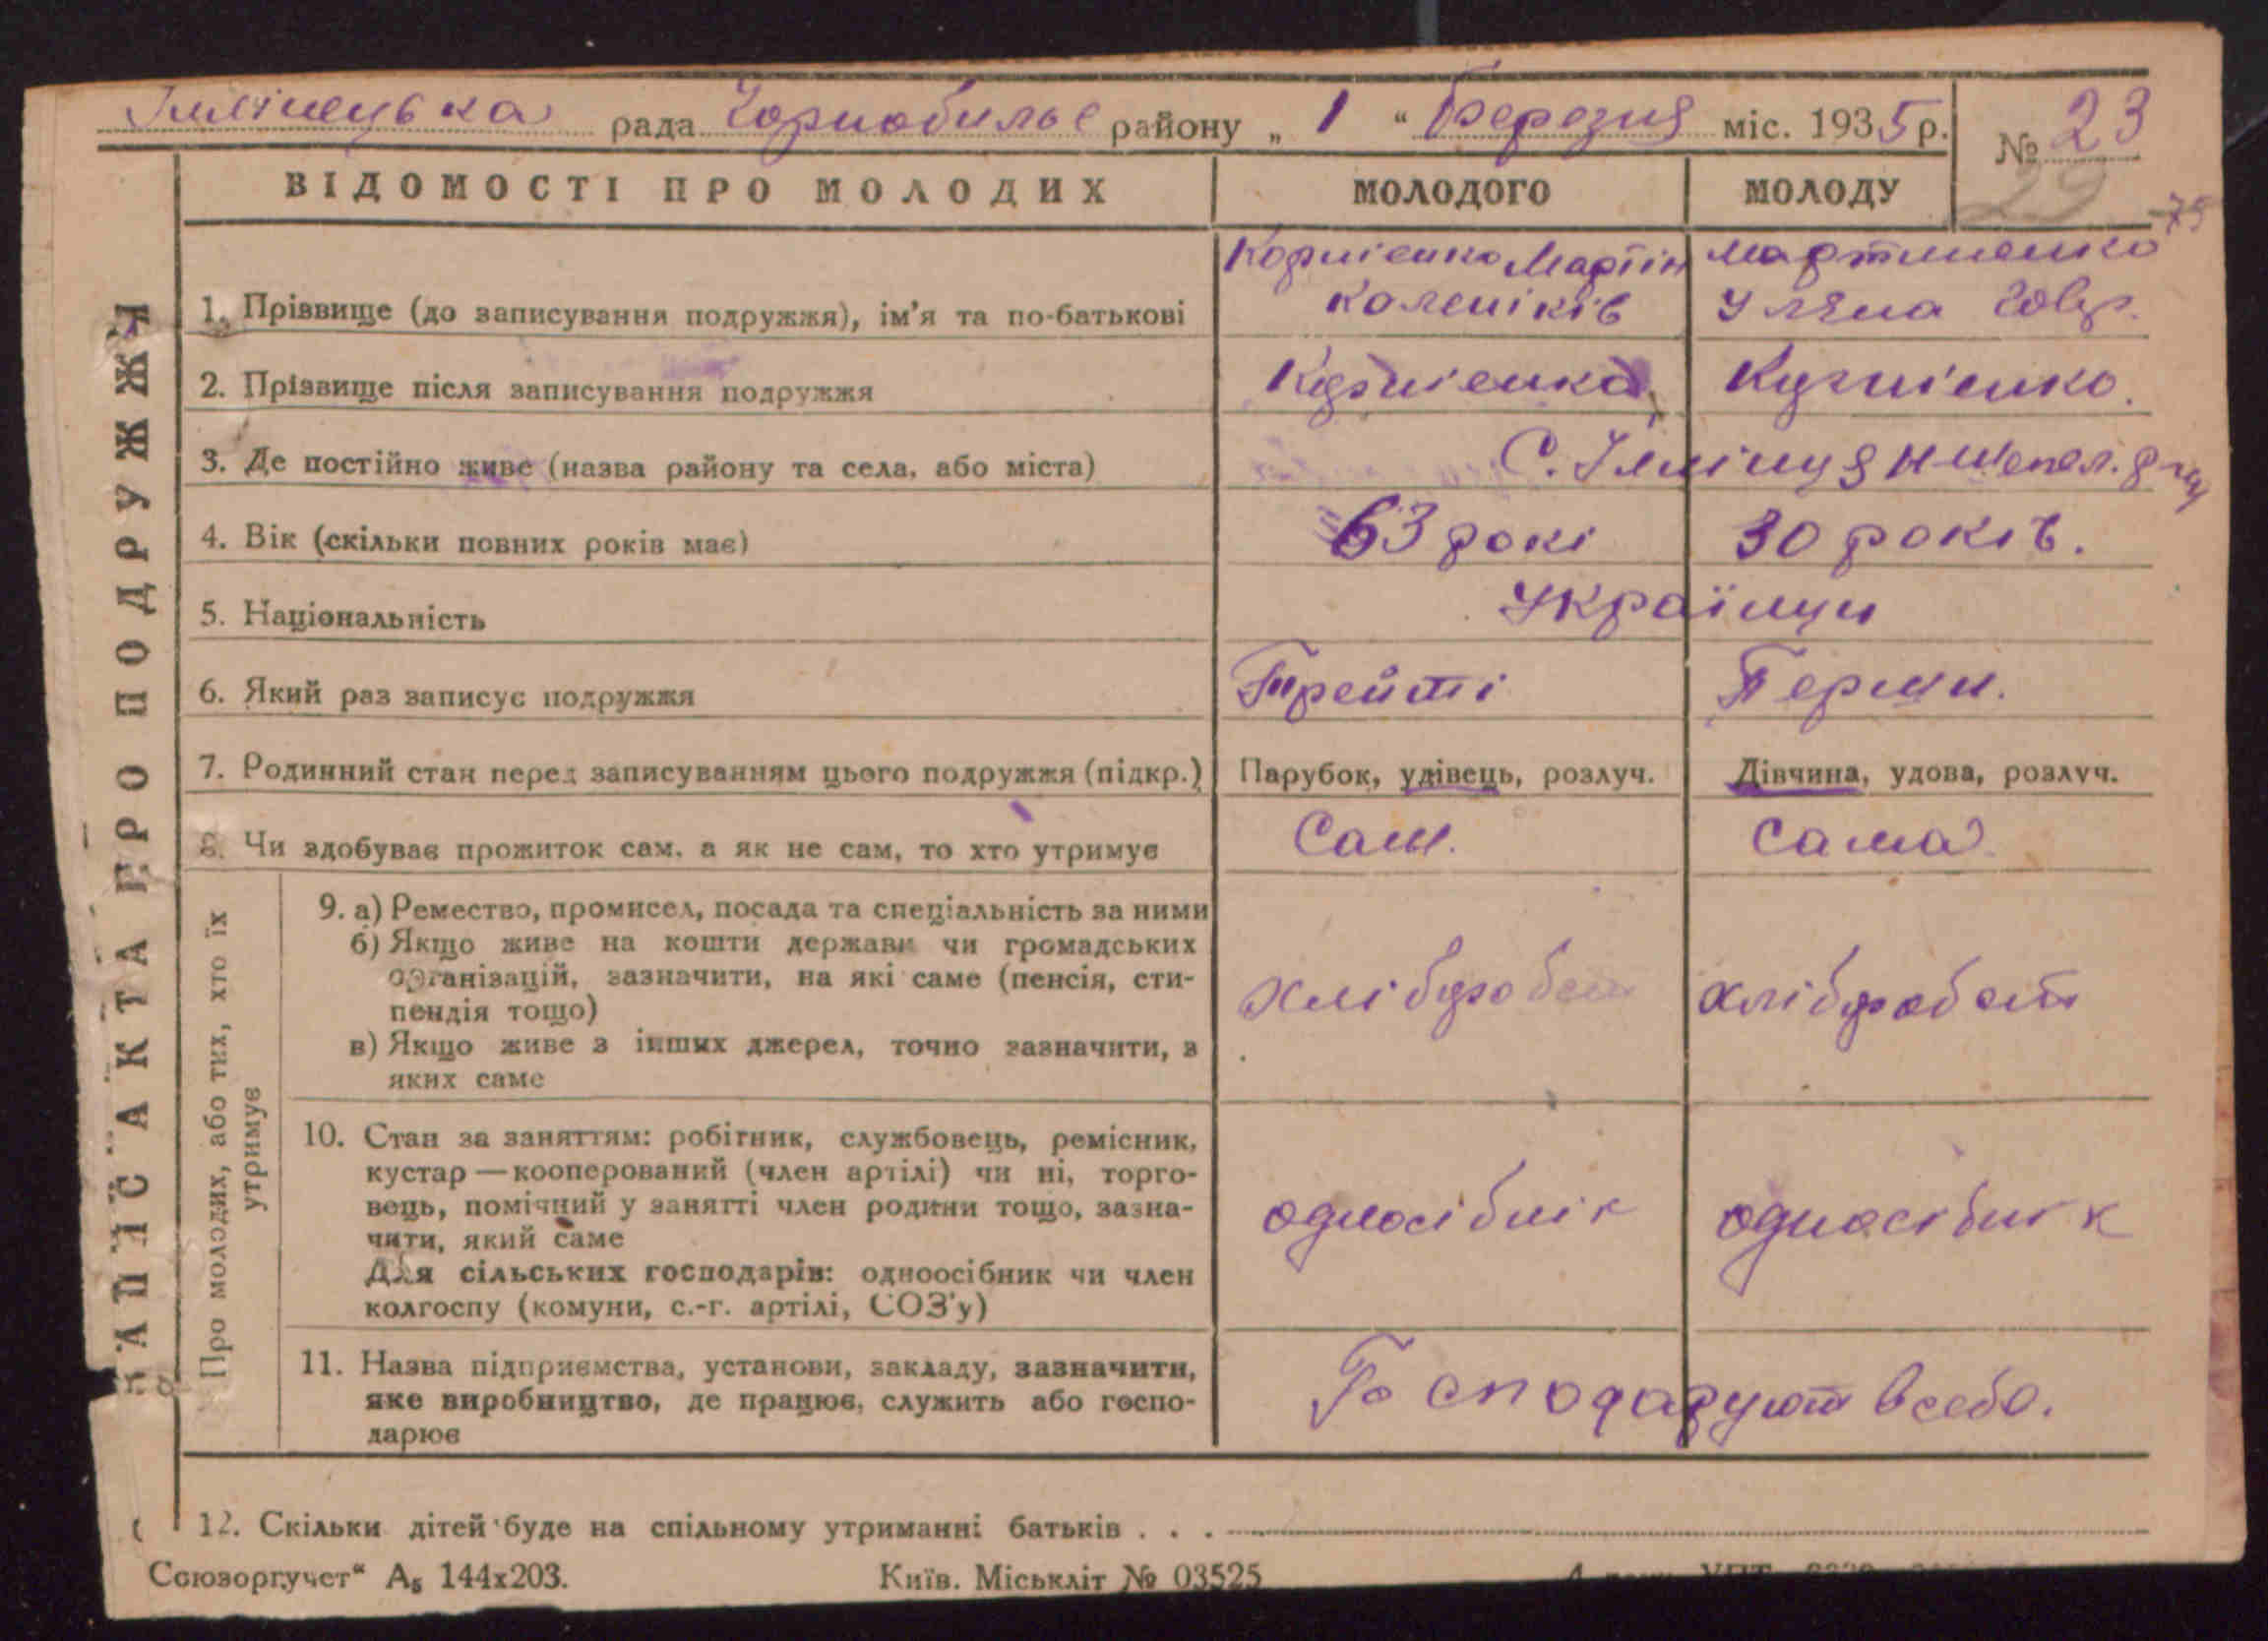 Іллінецька рада Чорнобильс району „ 1 “ Березня міс. 1935 р.
№ 23
29
75
ЗАПИС АКТА ПРО ПОДРУЖЖЯ
ВІДОМОСТІ ПРО МОЛОДИХ МОЛОДОГО МОЛОДУ
1. Прізвище (до записування подружжя), ім’я та по-батькові
Корнієнко Мартін
Коленіків
Мартиненко
Уляна
2. Прізвище після записування подружжя Корнієнко Курнієнко.
3. Де постійно живе (назва району та села, або міста) С. Іллінця
4. Вік (скільки повних років має) 63 рокі 30 років.
5. Національність Українци
6. Який раз записує подружжя Трейті Перши.
7. Родинний стан перед записуванням цього подружжя (підкр.) Парубок, удівець, розлуч. Дівчина, удова, розлуч.
8. Чи здобуває прожиток сам, а як не сам, то хто утримує Сам. Сама
Про молодих, або тих, хто їх
утримує
9. а) Ремество, промисел, посада та спеціальність за ними
б) Якщо живе на кошти держави чи громадських
організацій, зазначити, на які саме (пенсія, сти-
пендія тощо)
в) Якщо живе з інших джерел, точно зазначити, з
яких саме
хлібороб хлібороб
10. Стан за заняттям: робітник, службовець, ремісник,
кустар — кооперований (член артілі) чи ні, торго-
вець, помічний у занятті член родини тощо, зазна-
чити, який саме
Для сільських господарів: одноосібник чи член
колгоспу (комуни, с.-г. артілі, СОЗ’у)
односібнік односібнік
11. Назва підприємства, установи, закладу, зазначити,
яке виробництво, де працює, служить або госпо-
дарює
Господарують в себе.
12. Скільки дітей буде на спільному утриманні батьків . . .
Союзоргучет“ А₅ 144х203. Київ. Міськліт № 03525